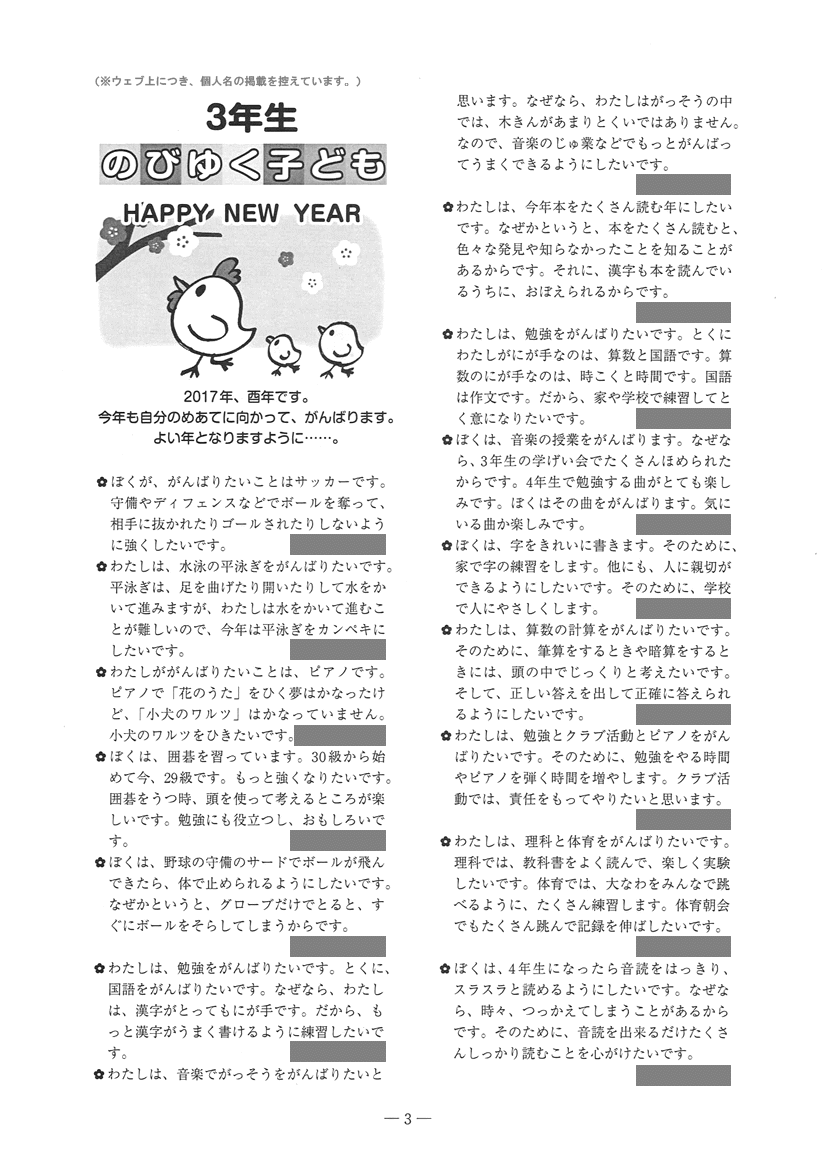 (※ウェブ上につき、個人名の掲載を控えています。)
3年生
のびゆく子ども
HAPPY NEW YEAR
2017年、酉年です。
今年も自分のめあてに向かって、がんばります。
よい年となりますように……。
✿ぼくが、がんばりたいことはサッカーです。
守備やディフェンスなどでボールを奪って、
相手に抜かれたりゴールされたりしないよう
に強くしたいです。
✿わたしは、水泳の平泳ぎをがんばりたいです。
平泳ぎは、足を曲げたり開いたりして水をか
いて進みますが、わたしは水をかいて進むこ
とが難しいので、今年は平泳ぎをカンペキに
したいです。
✿わたしががんばりたいことは、ピアノです。
ピアノで「花のうた」をひく夢はかなったけ
ど、「小犬のワルツ」はかなっていません。
小犬のワルツをひきたいです。
✿ぼくは、囲碁を習っています。30級から始
めて今、29級です。もっと強くなりたいです。
囲碁をうつ時、頭を使って考えるところが楽
しいです。勉強にも役立つし、おもしろいで
す。
✿ぼくは、野球の守備のサードでボールが飛ん
できたら、体で止められるようにしたいです。
なぜかというと、グローブだけでとると、す
ぐにボールをそらしてしまうからです。
✿わたしは、勉強をがんばりたいです。とくに、
国語をがんばりたいです。なぜなら、わたし
は、漢字がとってもにが手です。だから、も
っと漢字がうまく書けるように練習したいで
す。
✿わたしは、音楽でがっそうをがんばりたいと
思います。なぜなら、わたしはがっそうの中
では、木きんがあまりとくいではありません。
なので、音楽のじゅ業などでもっとがんばっ
てうまくできるようにしたいです。
✿わたしは、今年本をたくさん読む年にしたい
です。なぜかというと、本をたくさん読むと、
色々な発見や知らなかったことを知ることが
あるからです。それに、漢字も本を読んでい
るうちに、おぼえられるからです。
✿わたしは、勉強をがんばりたいです。とくに
わたしがにが手なのは、算数と国語です。算
数のにが手なのは、時こくと時間です。国語
は作文です。だから、家や学校で練習してと
く意になりたいです。
✿ぼくは、音楽の授業をがんばります。なぜな
ら、3年生の学げい会でたくさんほめられた
からです。4年生で勉強する曲がとても楽し
みです。ぼくはその曲をがんばります。気に
いる曲か楽しみです。
✿ぼくは、字をきれいに書きます。そのために、
家で字の練習をします。他にも、人に親切が
できるようにしたいです。そのために、学校
で人にやさしくします。
✿わたしは、算数の計算をがんばりたいです。
そのために、筆算をするときや暗算をすると
きには、頭の中でじっくりと考えたいです。
そして、正しい答えを出して正確に答えられ
るようにしたいです。
✿わたしは、勉強とクラブ活動とピアノをがん
ばりたいです。そのために、勉強をやる時間
やピアノを弾く時間を増やします。クラブ活
動では、責任をもってやりたいと思います。
✿わたしは、理科と体育をがんばりたいです。
理科では、教科書をよく読んで、楽しく実験
したいです。体育では、大なわをみんなで跳
べるように、たくさん練習します。体育朝会
でもたくさん跳んで記録を伸ばしたいです。
✿ぼくは、4年生になったら音読をはっきり、
スラスラと読めるようにしたいです。なぜな
ら、時々、つっかえてしまうことがあるから
です。そのために、音読を出来るだけたくさ
んしっかり読むことを心がけたいです。
— 3 —